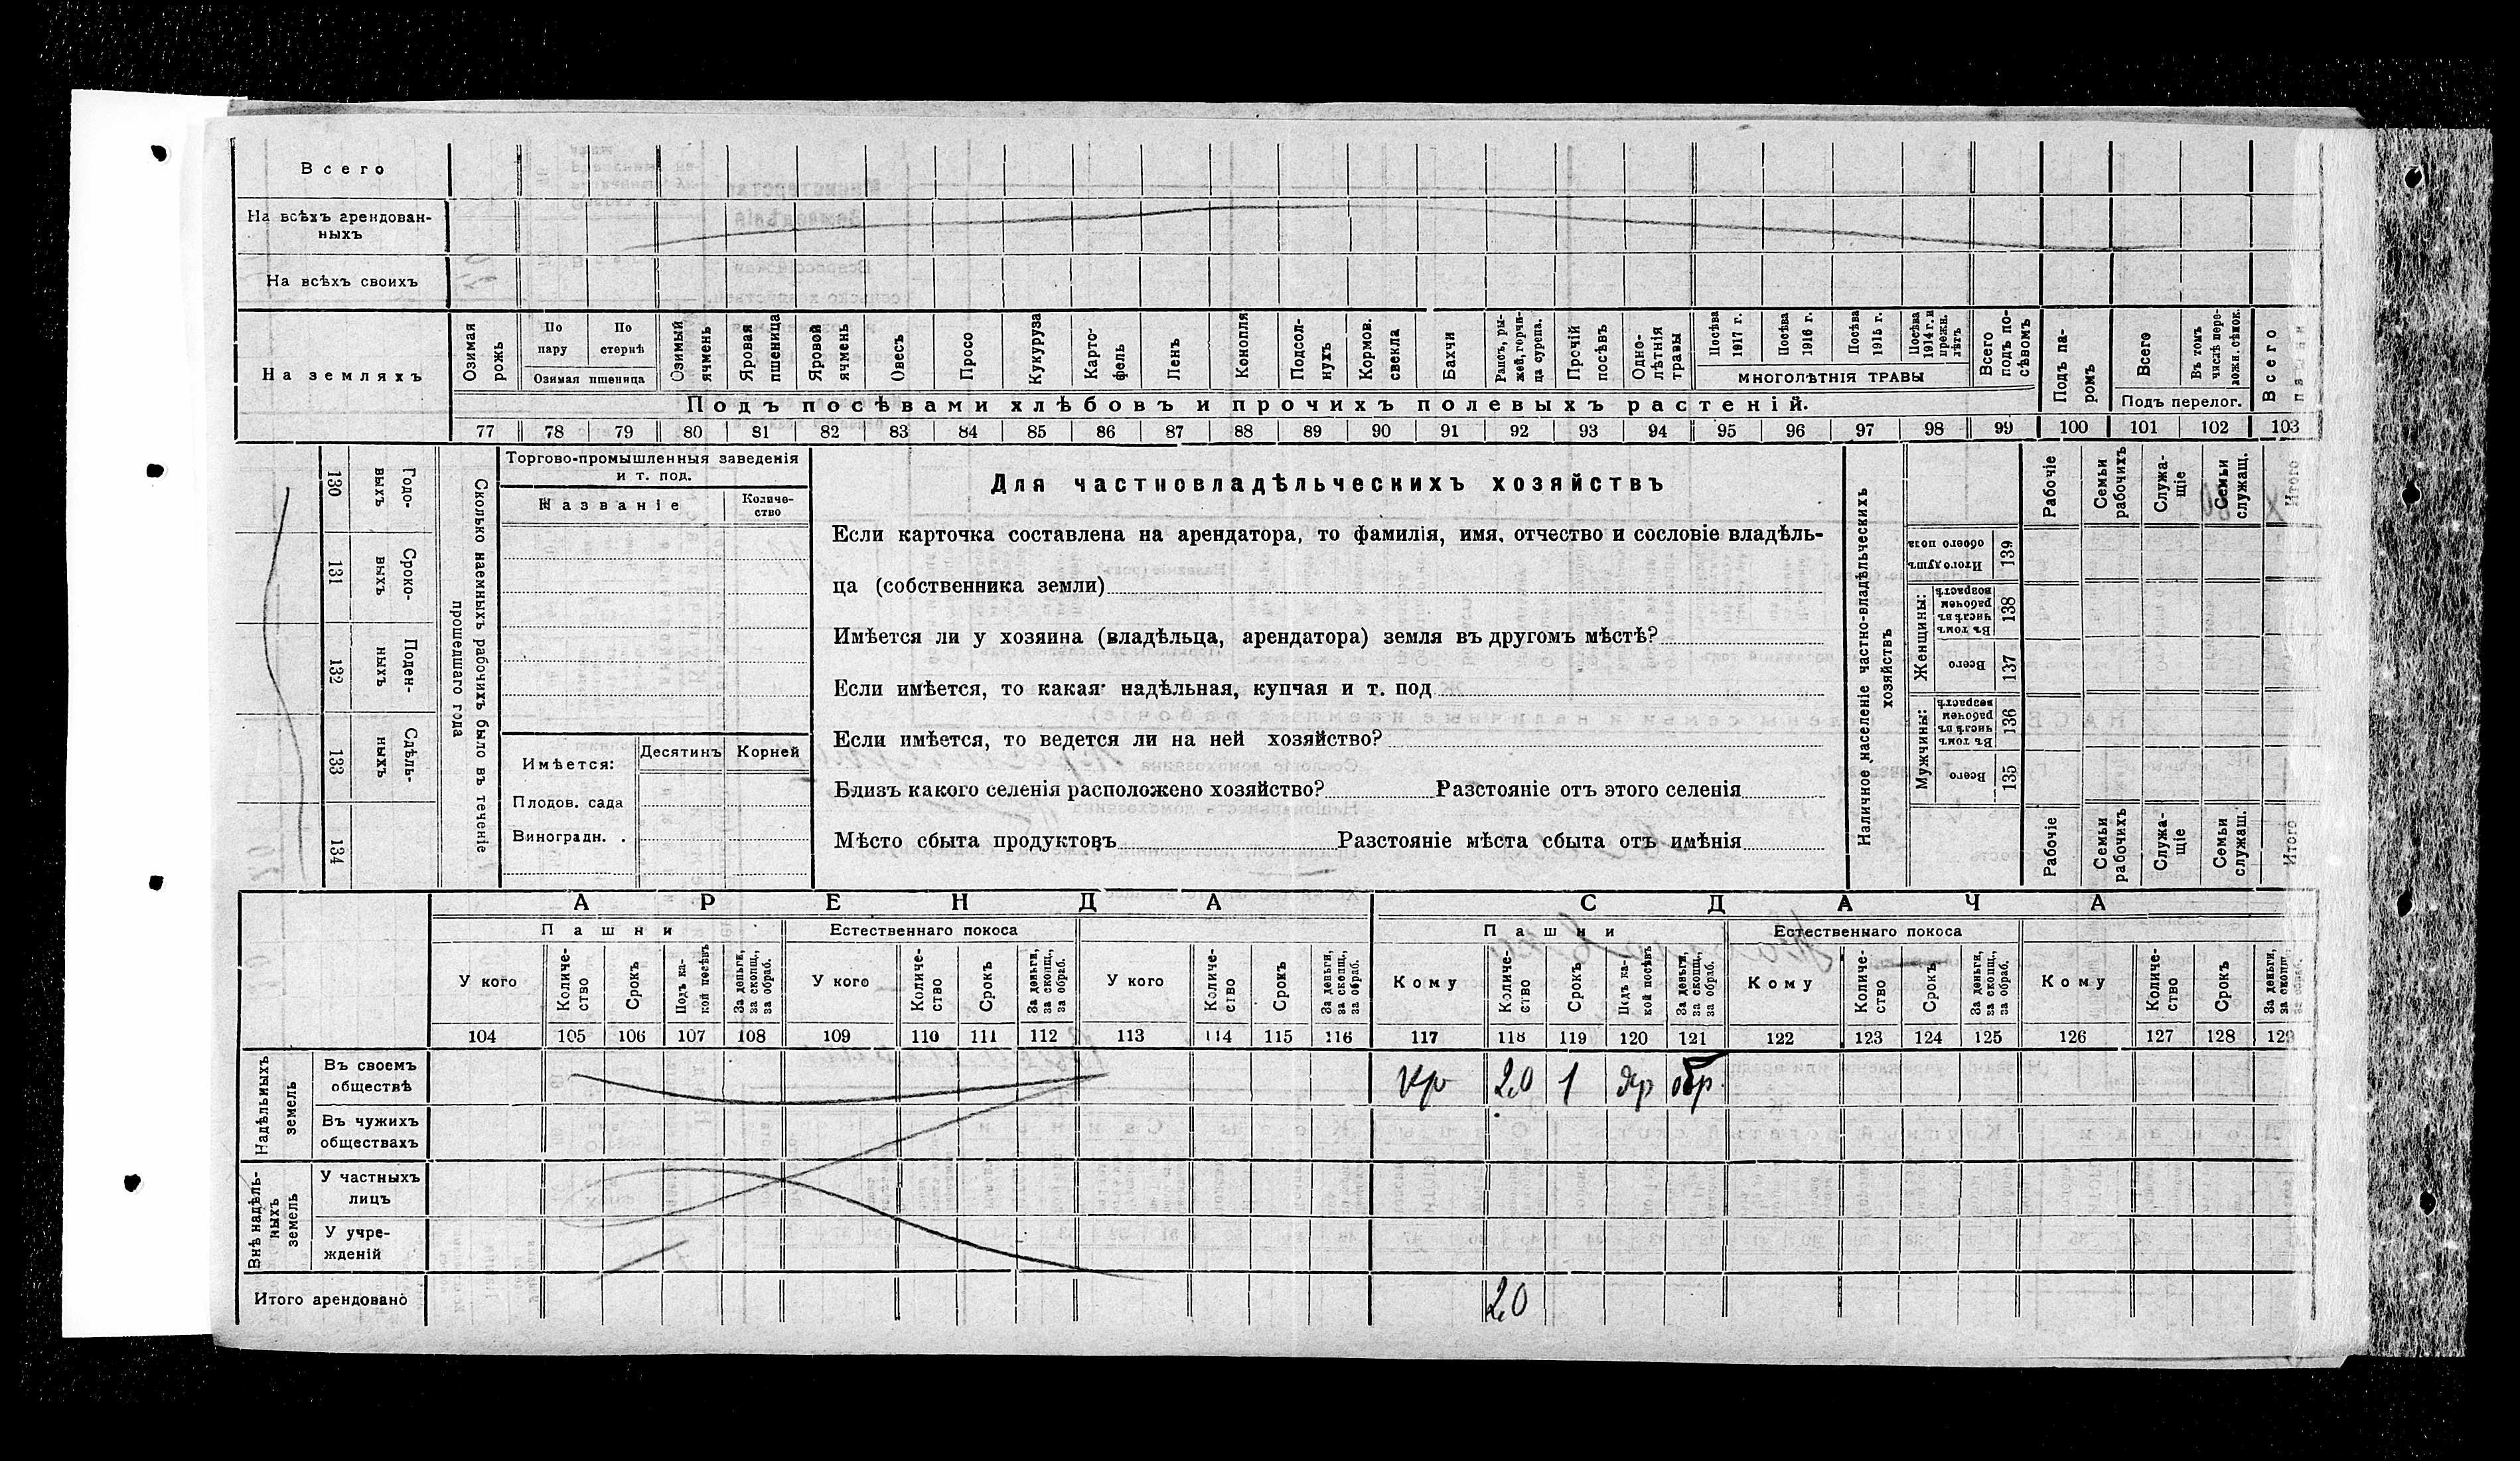 Всего
На всѣхъ арендован-
ныхъ
На всѣхъ своихъ
На земляхъ
Озимая рожь
По пару
По стернѣ
Озимая пшеница
Озимый ячмень
Яровая пшеница
Яровой ячмень
Овесъ
Просо
Кукуруза
Карто-
фель
Ленъ
Конопля
Подсол-
нухъ
Кормов. свекла
Бахчи
Рапсъ, ры-
жей, горчи-
ца сурепа.
Прочій посѣвъ
Одно-
лѣтнія травы
Посѣва 1917 г.
Посѣва 1916 г.
Посѣва 1915 г.
Посѣва 1914 г. и прежн. лѣтъ
МНОГОЛѢТНІЯ ТРАВЫ
Всего подъ по-
сѣвомъ
Подъ па-
ромъ
Всего
Въ томъ числѣ пере-
ложн. сѣнок.
Подъ перелог.
Всего
Подъ посѣвами хлѣбовъ и прочихъ полевыхъ растеній.
77 78 79 80 81 82 83 84 85 86 87 88 89 90 91 92 93 94 95 96 97 98 99 100 101 102 103
130 Годо-
выхъ
131 Сроко-
выхъ
132 Поден-
ныхъ
133 Сдѣль-
ныхъ
134
Сколько наемныхъ рабочихъ было въ теченіе
прошедшаго года
Торгово-промышленныя заведенія
и т. под.
Названіе
Количе-
ство
Имѣется:
Десятинъ
Корней
Плодов. сада
Виноградн. .
Для частновладѣльческихъ хозяйствъ
Если карточка составлена на арендатора, то фамилія, имя, отчество и сословіе владѣль-
ца (собственника земли)
Имѣется ли у хозяина (владѣльца, арендатора) земля въ другомъ мѣстѣ?
Если имѣется, то какая: надѣльная, купчая и т. под
Если имѣется, то ведется ли на ней хозяйство?
Близъ какого селенія расположено хозяйство? Разстояніе отъ этого селенія
Мѣсто сбыта продуктовъ Разстояніе мѣста сбыта отъ имѣнія
Наличное населеніе частно-владѣльческихъ
хозяйствъ
Рабочіе
Семьи рабочихъ
Служа-
щіе
Семьи служащ.
Итого
Итого душъ обоего пола 139
Женщины:
Въ томъ числѣ въ рабочемъ возрастѣ 138
Всего 137
Мужчины:
Въ томъ числѣ въ рабочемъ возрастѣ 136
Всего 135
Рабочіе
Семьи рабочихъ
Служа-
щіе
Семьи служащ.
Итого
АРЕНДА
СДАЧА
Пашни
Естественнаго покоса
Пашни
Естественнаго покоса
У кого
Количе-
ство
Срокъ
Подъ ка-
кой посѣвъ
За деньги, за скопщ., за обраб.
У кого
Количе-
ство
Срокъ
За деньги, за скопщ., за обраб.
У кого
Количе-
ство
Срокъ
За деньги, за скопщ., за обраб.
Кому
Количе-
ство
Срокъ
Подъ ка-
кой посѣвъ
За деньги, за скопщ., за обраб.
Кому
Количе-
ство
Срокъ
За деньги, за скопщ., за обраб.
Кому
Количе-
ство
Срокъ
За деньги, за скопщ., за обраб.
104 105 106 107 108 109 110 111 112 113 114 115 116 117 118 119 120 121 122 123 124 125 126 127 128 129
Надѣльныхъ
земель
Въ своемъ
обществѣ
Кр 2,0 1 Яр обр.
Въ чужихъ
обществахъ
Внѣ надѣль-
ныхъ
земель
У частныхъ
лицъ
У учре-
жденій
Итого арендовано
2,0